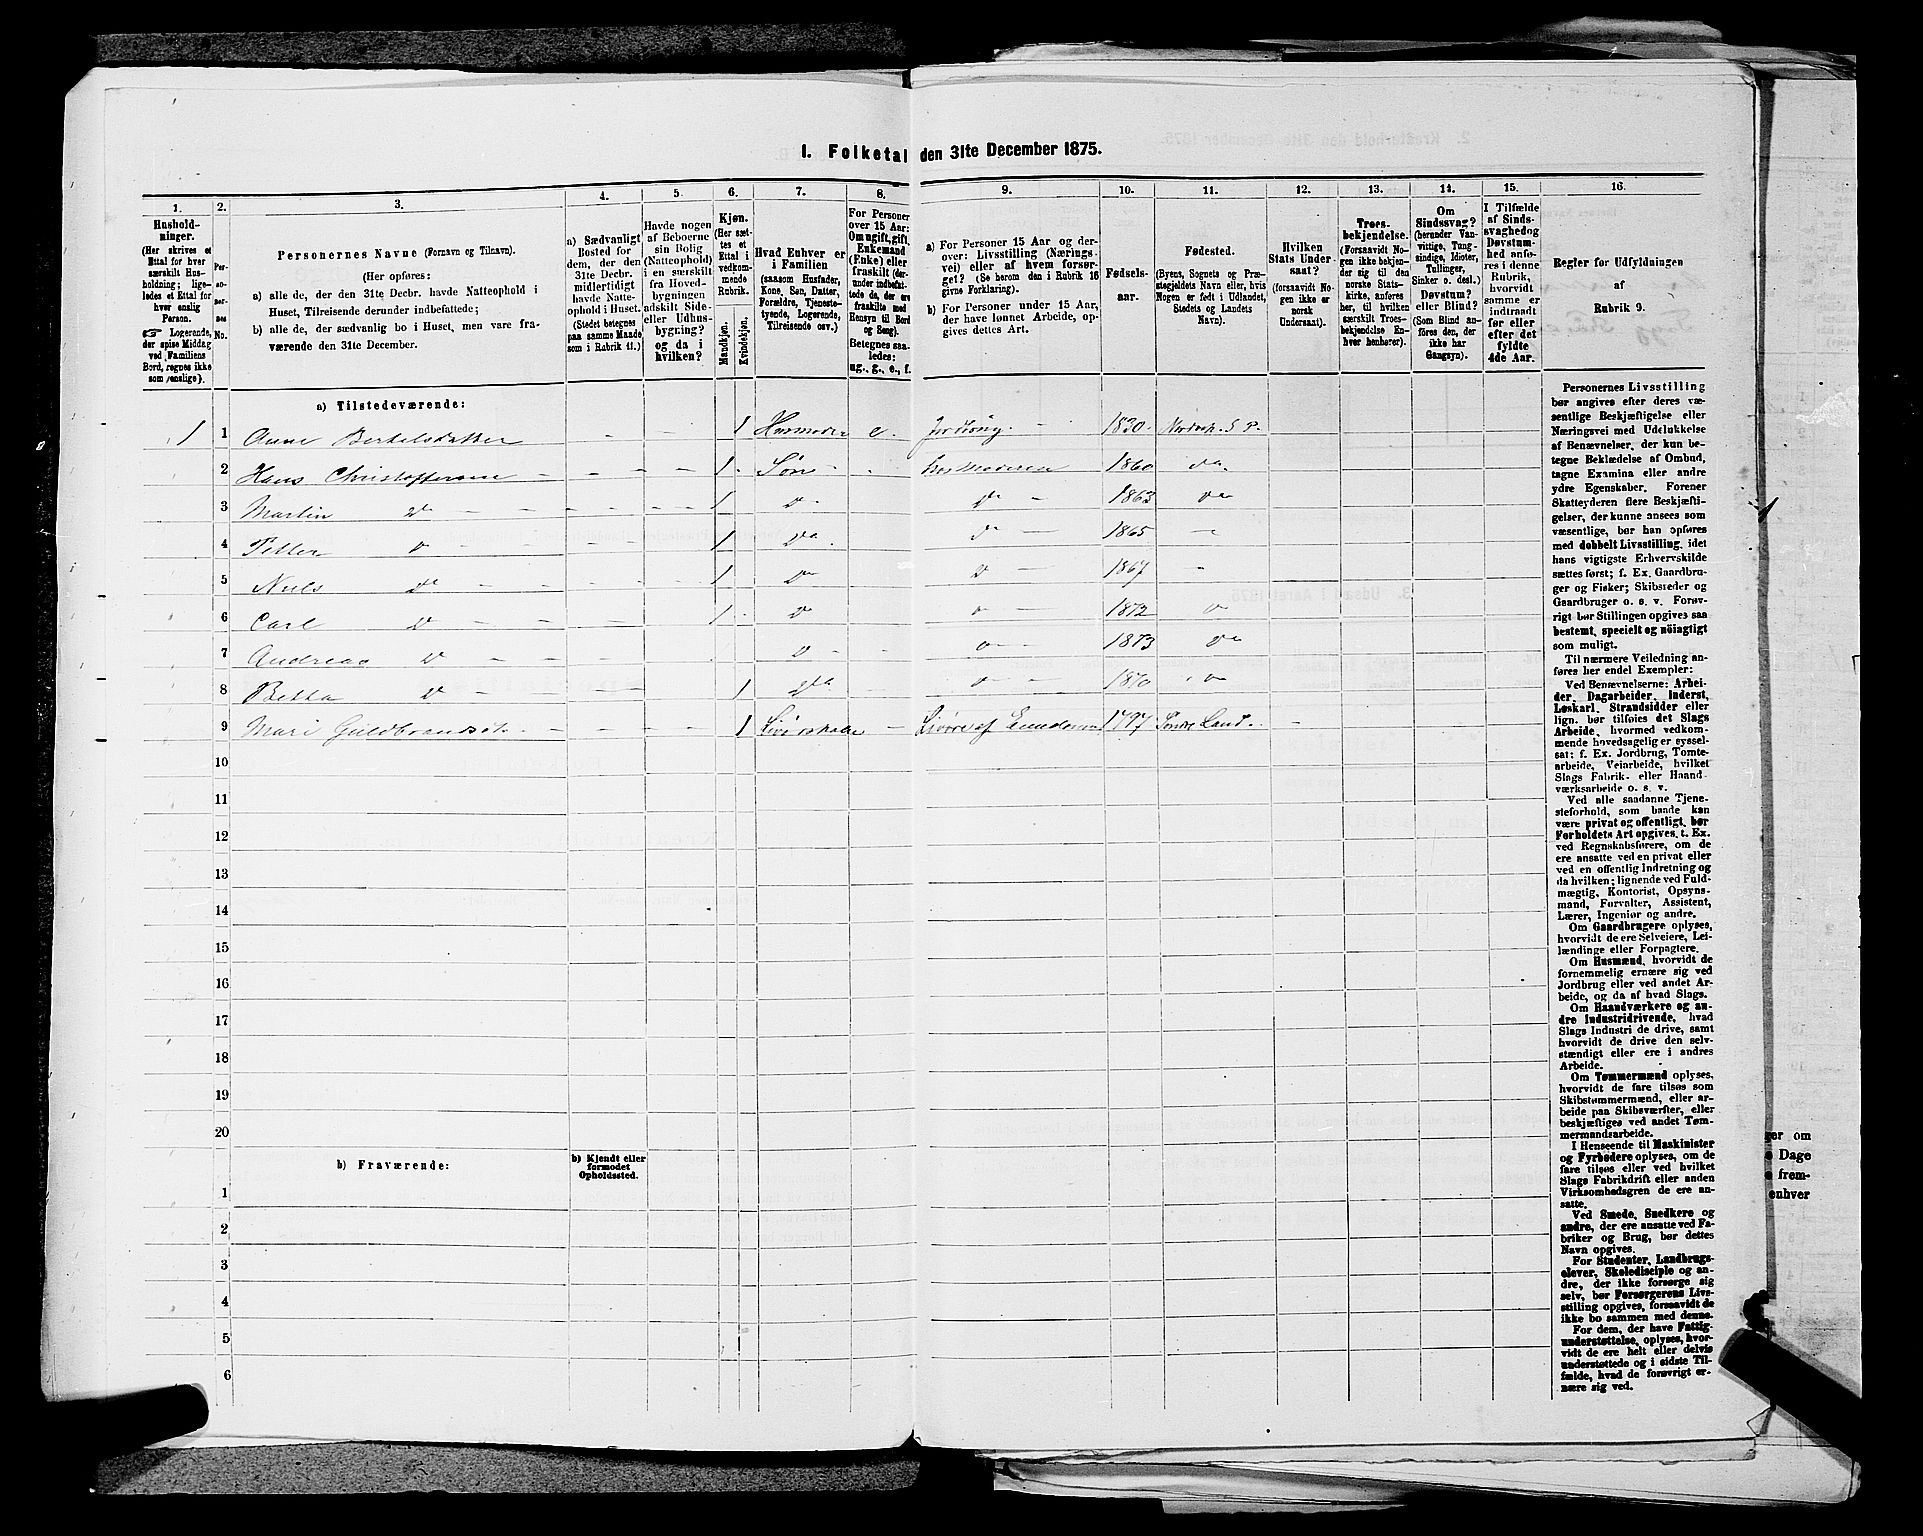 I. Folketal den 31te December 1875.
1. 2. 3. 4. 5. 6. 7. 8. 9. 10. 11. 12. 13. 14. 15. 16.
Husholdninger.
(Her skrives et
Ettal for hver
særskilt Husholdning; ligeledes et Ettal for
hver enslig
Person.
☞ Logerende,
der spise Middag
ved Familiens
Bord, regnes ikke
som enslige).
Personernes No.
Personernes Navne (Fornavn og Tilnavn).
(Her opføres:
a) alle de, der den 31te Decbr. havde Natteophold i
Huset, Tilreisende derunder indbefattede;
b) alle de, der sædvanlig bo i Huset, men vare fraværende den 31te December.
a) Sædvanligt
Bosted for
dem, der den
31te Decbr.
midlertidigt
havde Natteophold i Huset.
(Stedet betegnes
paa samme Maade
som i Rubrik 11.)
Havde nogen
af Beboerne
sin Bolig
(Natteophold)
i en særskilt
fra Hovedbygningen
adskilt Side-
eller Udhusbygning?
og da i
hvilken?
Kjøn.
(Her sættes et
Ettal i
vedkommende
Rubrik.
Mandkjøn.
Kvindekjøn.
Hvad Enhver er
i Familien
(saasom Husfader,
Kone, Søn, Datter,
Forældre, Tjenestetyende, Logerende,
Tilreisende osv.)
For Personer
over 15 Aar:
Om ugift, gift,
Enkemand
(Enke) eller
fraskilt (derunder indbefattede da, der ere
fraskilte med
Hensyn til Bord
og Seng).
Betegnes saaledes:
ug., g., e., f.
a) For Personer 15 Aar og derover: Livsstilling (Næringsvei) eller af hvem forsørget? (Se herom den i Rubrik 16
givne Forklaring).
b) For Personer under 15 Aar,
der have lønnet Arbeide, opgives dettes Art.
Fødselsaar.
Fødested.
(Byens, Sognets og Præstegjeldets Navn eller, hvis
Nogen er født i Udlandet,
Stedets og Landets
Navn).
Hvilken
Stats Undersaat?
(forsaavidt Nogen ikke er
norsk
Undersaat).
Troesbekjendelse.
(Forsaavidt Nogen ikke bekjender sig til den
norske Statskirke, anføres
her, til hvilken
særskilt Troesbekjendelse Enhver henhører).
Om
Sindssvag?
(herunder Vanvittige, Tungsindige, Idioter,
Tullinger,
Sinker o. desl.)
Døvstum?
eller Blind?
(Som Blind anføres den, der
ikke har
Gangsyn).
I Tilfælde
af Sindssvaghed og
Døvstumhed anføres i denne
Rubrik,
hvorvidt
samme er
indtraadt
før eller
efter det
fyldte
4de Aar.
Regler for Udfyldningen
af
Rubrik 9.
a) Tilstedeværende:
1 1 Anne Bertelsdatter - - 1 Husmoder e. Jordbrug - 1830. Nordsh. S. P.
2 Hans Christoffersen - - - - 1 - Søn - - hos Moderen 1860 do
3 Martin D - - - - - - 1 D - D - 1863 do
4 Petter D - - - - 1 Do - D - 1865 -
5 Niels D - - - - 1 D D - 1867 -
6 Carl D - - - - 1 - D D - 1872 D
7 Andreas D - - - D - D - 1873 Do
8 Betha D - - - 1 Do D - 1870 Do
9 Mari Guldbrandsdt. - - - - 1 Livørskone - Livøre af Eiendommen 1797 Søndre Land. -
10
11
12
13
14
15
16
17
18
19
20
b) Fraværende:
b) Kjendt eller
formodet
Opholdssted.
1
2
3
4
5
6
Personernes Livsstilling
bør angives efter deres væsentlige Beskjæftigelse eller
Næringsvei med Udelukkelse
af Benævnelser, der kun betegne Beklædelse af Ombud,
tagne Examina eller andre
ydre Egenskaber. Forener
Skatteyderen flere Beskjæftigelser, der kunne ansees som
væsentlige, bør han opføres
med dobbelt Livsstilling, idet
hans vigtigste Erhvervskilde
sættes først; f. Ex. Gaardbruger og Fisker; Skibsreder og
Gaardbruger o. s. v. Forøvrigt bør Stillingen opgives saa
bestemt, specielt og nøiagtigt
som muligt.
Til nærmere Veiledning anføres her endel Exempler:
Ved Benævnelserne: Arbeider, Dagarbeider, Inderst,
Løskarl, Strandsidder eller
lign. bør tilføies det Slags
Arbeide, hvormed vedkommende hovedsagelig er sysselsat; f. Ex. Jordbrug, Tomtearbeide, Veiarbeide, hvilket
Slags Fabrik- eller Haandværksarbeide o. s. v.
Ved alle saadanne Tjenesteforhold, som baade kan
være privat og offentligt, bør
Forholdets Art opgives, t. Ex.
ved Regnskabsførere, om de
ere ansatte ved en privat eller
ved en offentlig Indretning og
da hvilken; lignende ved Fuldmægtig, Kontorist, Opsynsmand, Forvalter, Assistent,
Lærer, Ingeniør og andre.
Om Gaardbrugere oplyses,
hvorvidt de ere Selveiere, Leilændinge eller Forpagtere.
Om Husmænd, hvorvidt de
fornemmelig ernære sig ved
Jordbrug eller ved andet Arbeide, og da af hvad Slags.
Om Haandværkere og andre Industridrivende, hvad
Slags Industri de drive, samt
hvorvidt de drive den selvstændigt eller ere i andres
Arbeide.
Om Tømmermænd oplyses,
hvorvidt de fare tilsøs som
Skibstømmermænd, eller arbeide paa Skibsværfter, eller
beskjæftiges ved andet Tømmermandsarbeide.
I Henseende til Maskinister
og Fyrbødere oplyses, om de
fare tilsøs eller ved hvilket
Slags Fabrikdrift eller anden
Virksomhedsgren de ere ansatte.
Ved Smede, Snedkere og
andre, der ere ansatte ved Fabriker og Brug, bør dettes
Navn opgives.
For Studenter, Landbrugselever, Skoledisciple og andre, der ikke forsørge sig
selv, bør Forsørgerens Livsstilling opgives, forsaavidt de
ikke bo sammen med denne.
For dem, der have Fattigunderstøttelse, oplyses, hvorvidt de ere helt eller delvis
understøttede og i sidste Tilfælde, hvad de forøvrigt ernære sig ved.
ger om
Dage
frem-
enhver